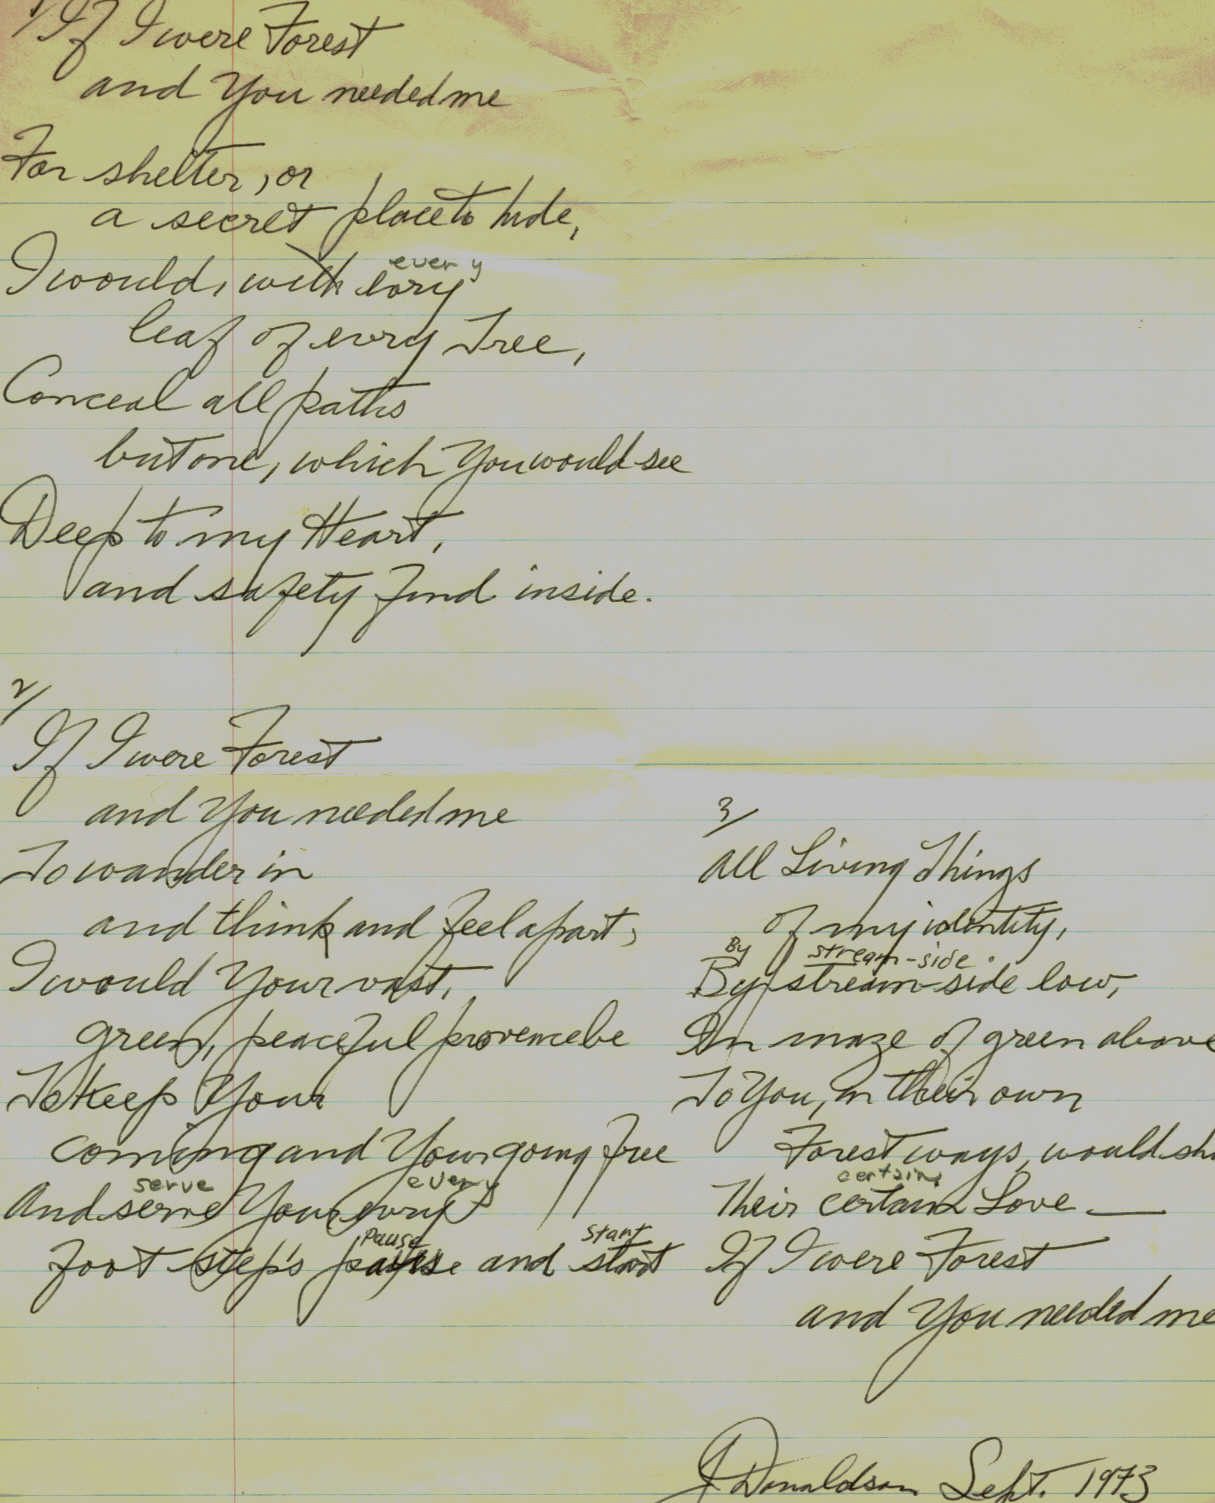 1/ If I were Forest
and You needed me
For shelter, or
a secret place to hide,
every
I would, with evry
leaf of evry Tree,
Conceal all paths
but one, which You would see
Deep to my Heart,
and safety find inside.
2/
If I were Forest
and You needed me
To wander in
and think and feel apart,
I would Your vast,
green, peaceful provence be
To keep Your
coming and Your going free
serve every
And serve Your evry
Pause Start
foot step's pause and start
3/
All Living Things
of my identity,
By stream-side
By stream-side low,
In maze of green above
To You, in their own
Forest ways, would sh
certain
Their certain Love —
If I were Forest
and You needed me
J Donaldson Sept. 1973